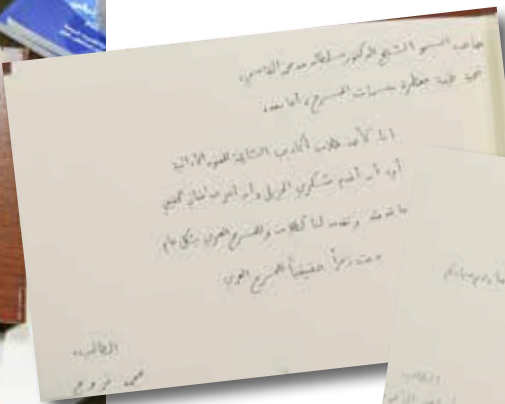 صاحب السمو الشيخ الدكتور سلطان بن محمد القاسمي،
تحية طيبة معطرة بنسمات المسرح، أما بعد،
أنا كأحد طلاب أكاديمية الشارقة للفنون الأدائية
أود أن أقدم شكري الجزيل وأن أعرب
ما قدمته وتقدمه لنا كطلاب وللمسرح العربي بشكل عام
دمت رمزاً حقيقياً للمسرح العربي
الطالب،